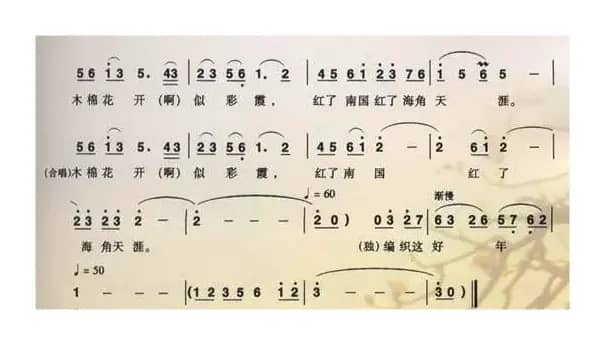 5 6 1 3 5. 4 3 | 2 3 5 6 1. 2 | 4 5 6 1 2 3 7 6 | 1 5 6 5 - - |
木棉花 开(啊)似 彩 霞， 红了南国红了海角 天 涯。
5 6 1 3 5. 4 3 | 2 3 5 6 1. 2 | 4 5 6 1 2 - | 2 6 1 2 - |
(合唱)木棉花 开(啊)似 彩 霞， 红了南 国 红 了
♩=60 渐慢
2 3 2 3 2 - | 2 - - - | 2 0) 0 3 2 7 | 6 3 2 6 5 7 6 2 |
海 角天 涯。 (独)编织这 好 年
♩=50
1 - - - | (1 2 3 5 6 1 2 | 3 - - - | 3 0) ‖